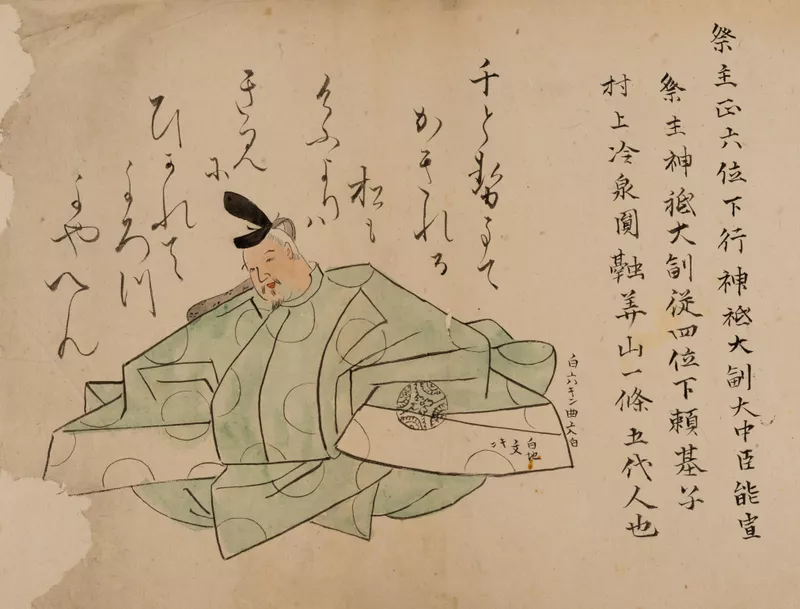 祭主正六位下行神祇大副大中臣能宣
祭主神祇大副従四位下頼基子
村上冷泉圓融華山一條五代人也
千と勢まて
かきれる
松も
けふよりハ
きみ
に
ひかれて
よろ川
よやへん
白地
文